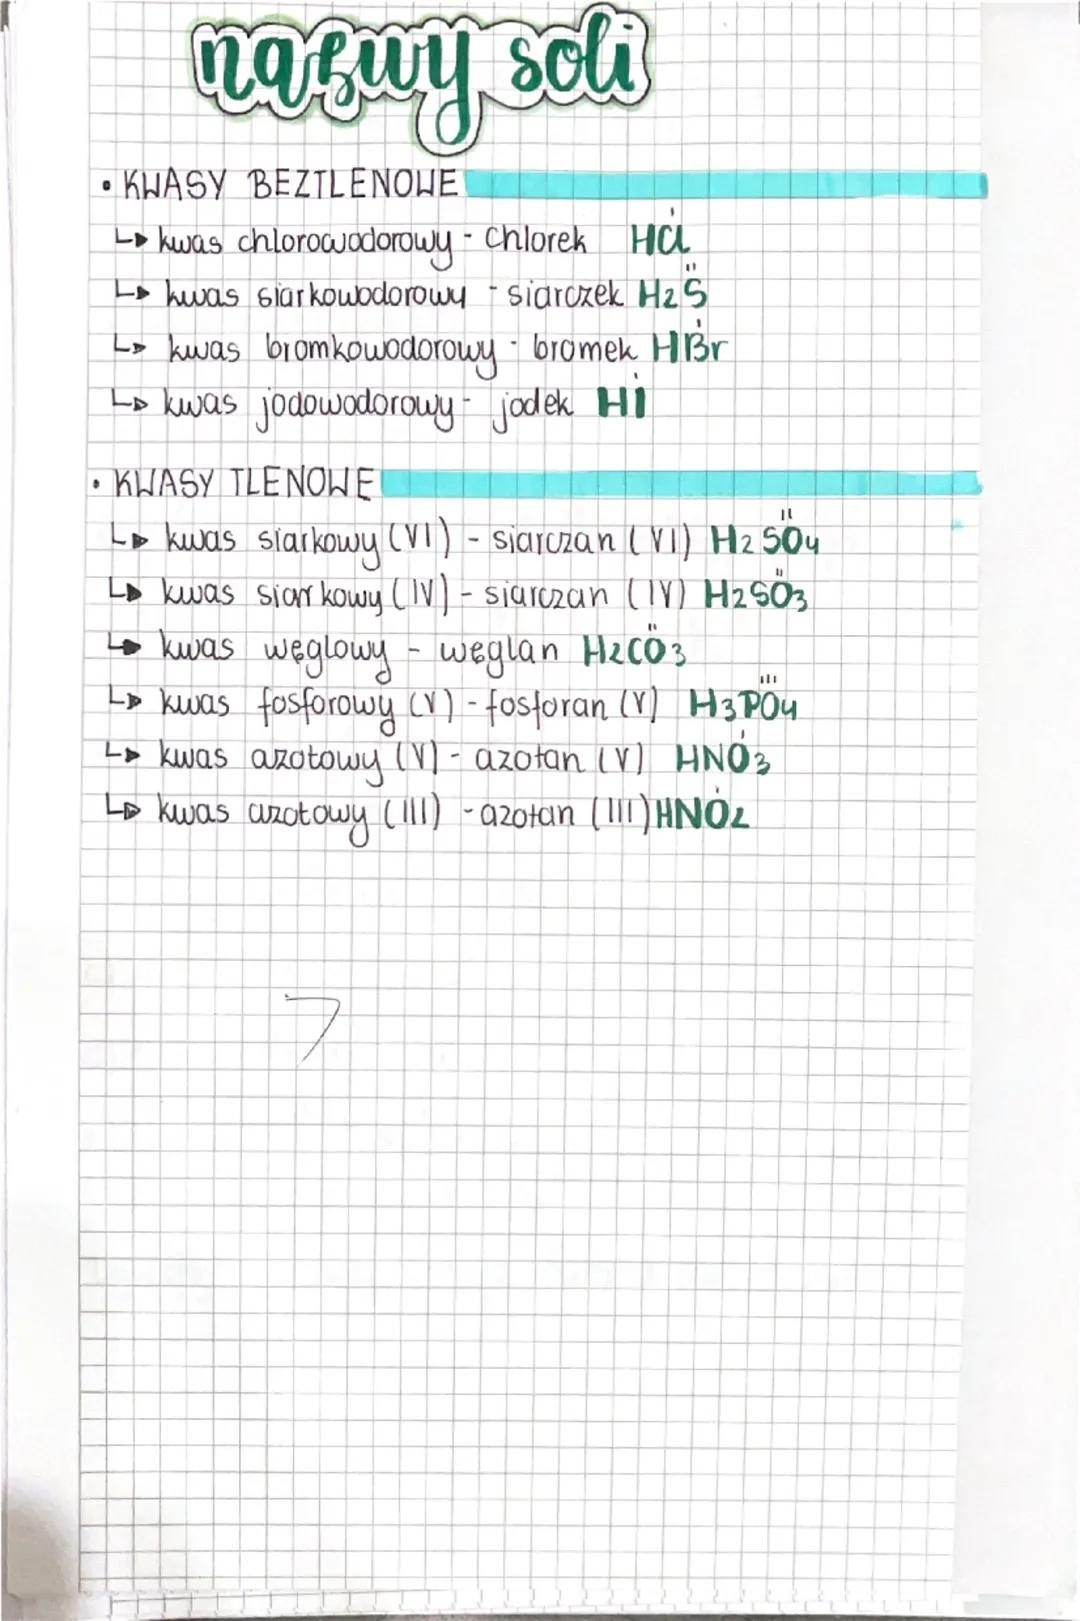 nazwy soli
• KWASY BEZTLENOWE
↳ kwas chlorowodorowy - Chlorek HCl
↳ kwas siarkowodorowy - siarczek H2S
↳ kwas bromkowodorowy - bromek HBr
↳ kwas jodowodorowy - jodek HI
• KWASY TLENOWE
↳ kwas siarkowy (VI) - siarczan (VI) H2SO4
↳ kwas siarkowy (IV) - siarczan (IV) H2SO3
↳ kwas węglowy - węglan H2CO3
↳ kwas fosforowy (V) - fosforan (V) H3PO4
↳ kwas azotowy (V) - azotan (V) HNO3
↳ kwas azotowy (III) - azotan (III) HNO2